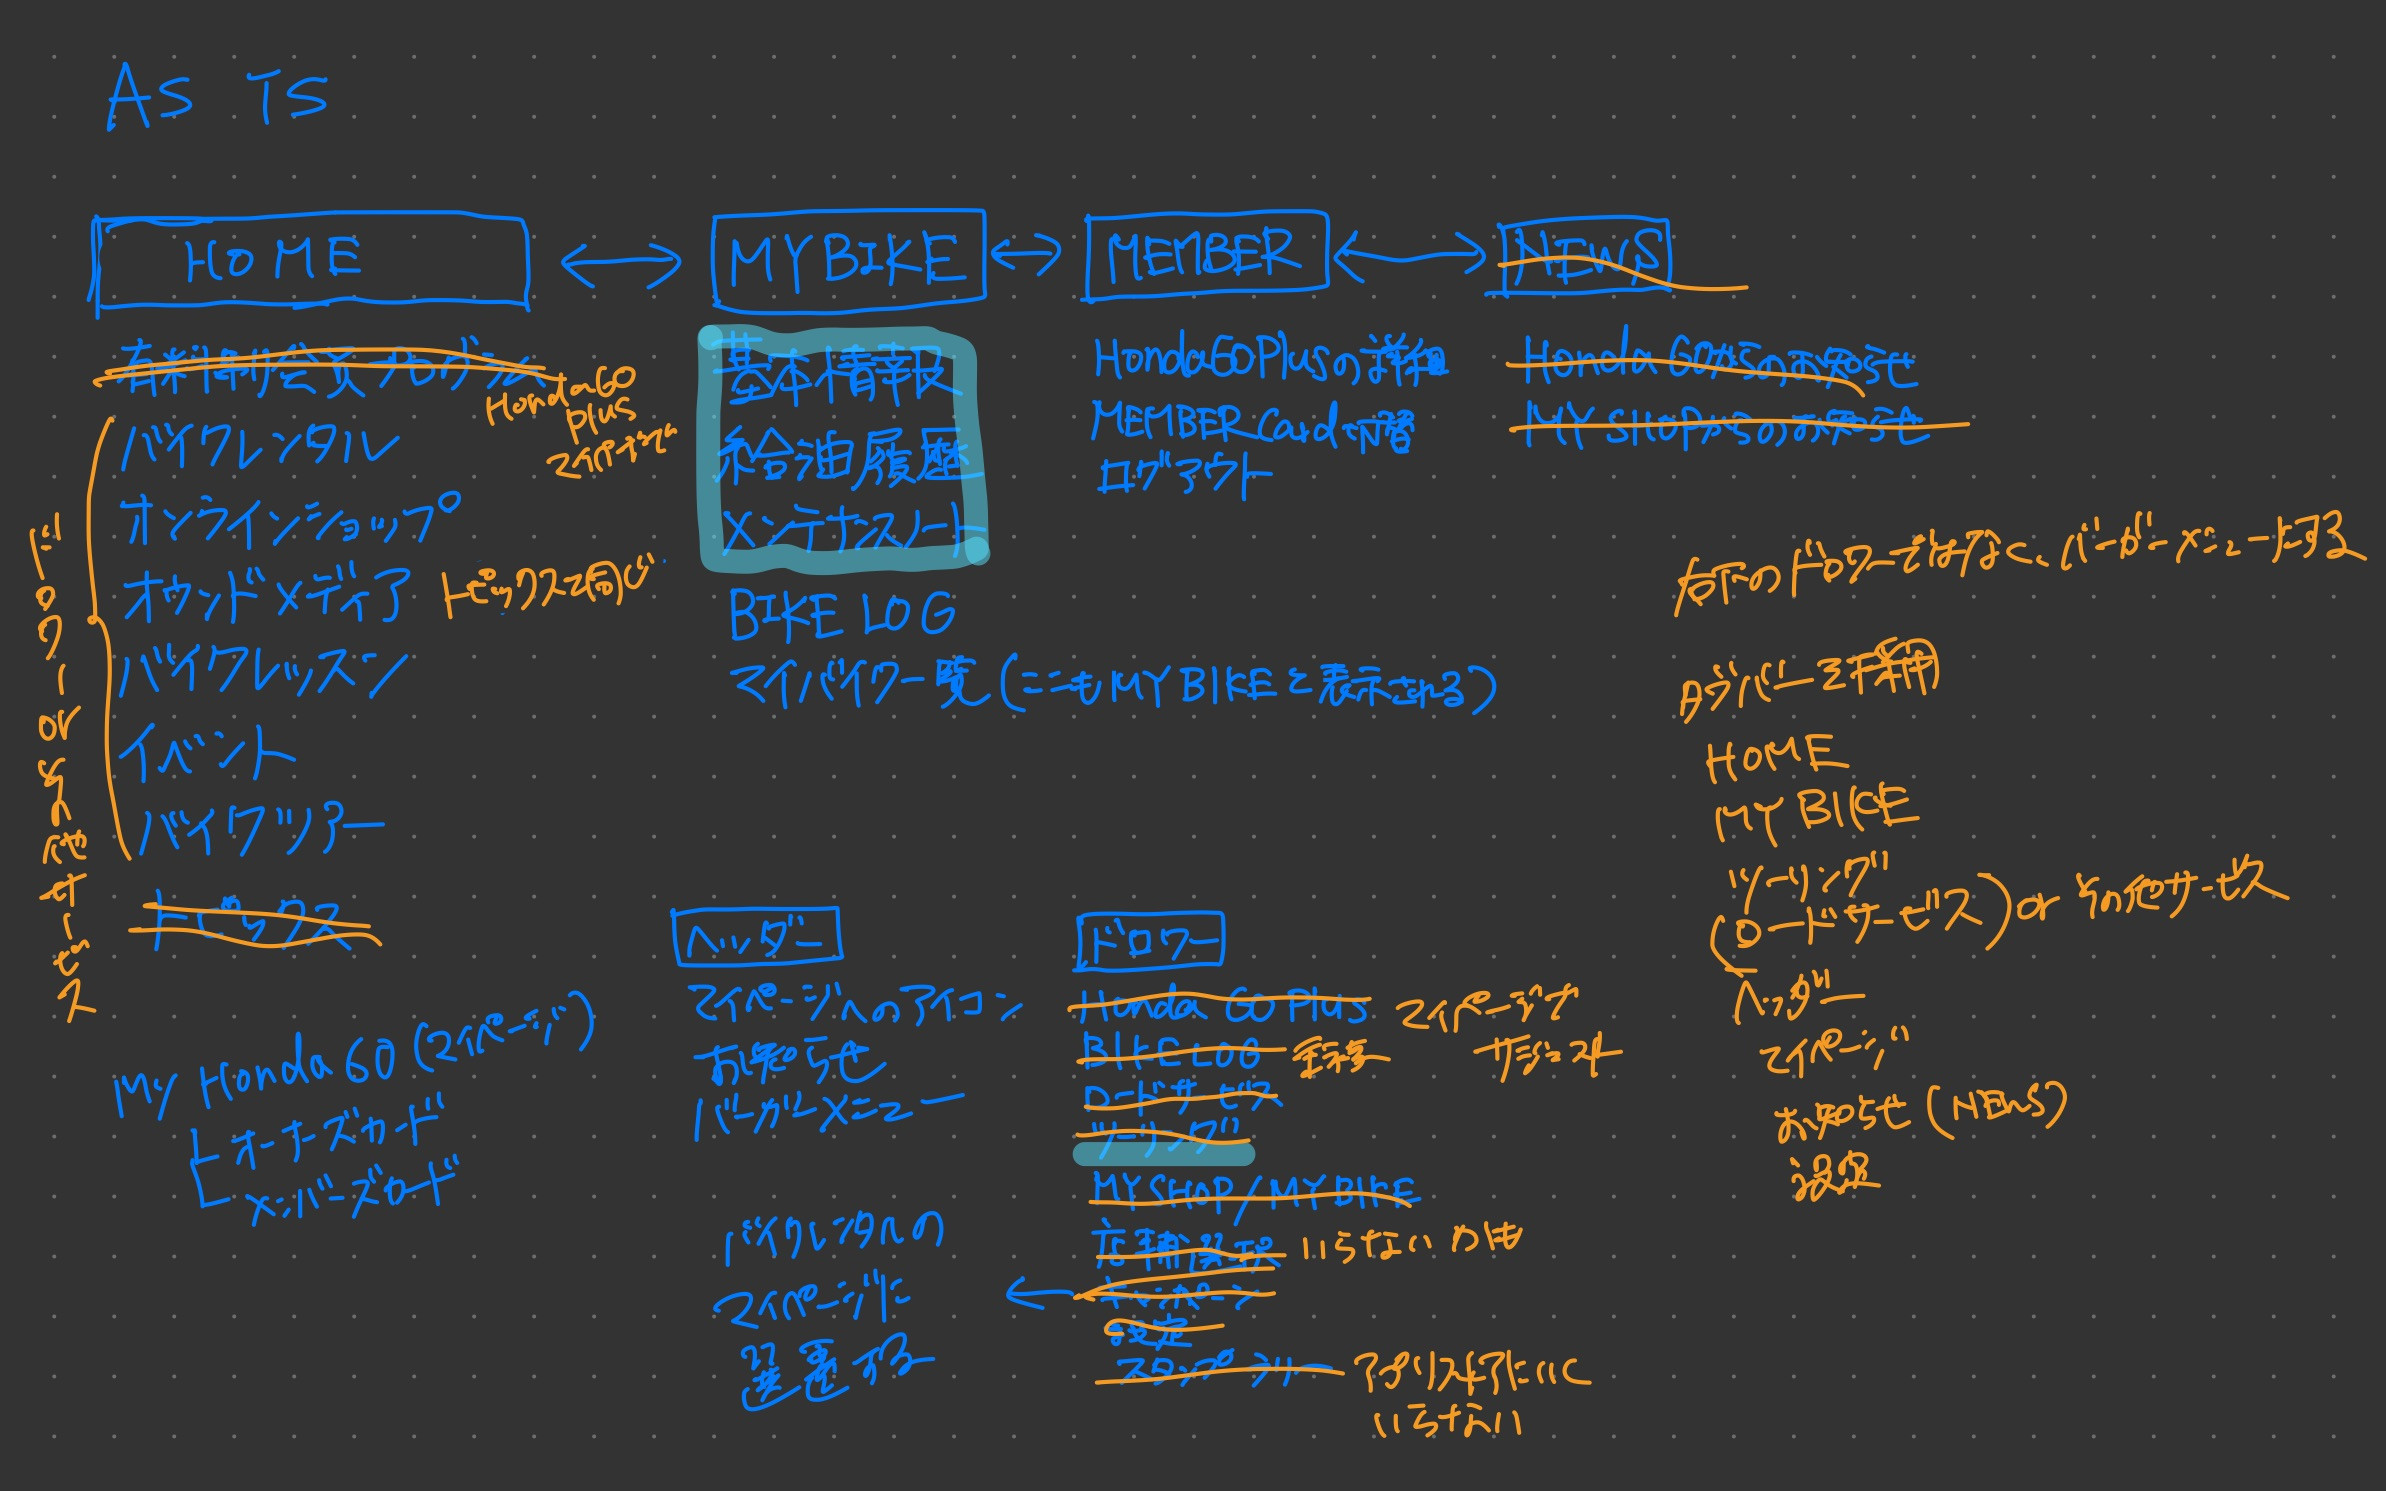 AS IS
HOME
MYBIKE
MEMBER
NEWS
HondaGO
PLUS
マイページ
バイクレンタル
オンラインショップ
オウンドメディア トピックスと同じ
バイクレッスン
イベント
バイクツアー
トピックス
ドロワー or その他サービス
基本情報
給油履歴
メンテナンスノート
BIKE LOG
マイバイク一覧(ここもMYBIKEと表示される)
HondaGOPlusの詳細
MEMBER Card
ログアウト
Honda GOからのお知らせ
MY SHOPからのお知らせ
My Honda GO (マイページ)
オーナーズカード
メンバーズカード
ヘッダー
マイページへのアイコン
お知らせ
バーガーメニュー
バイクレンタルの
マイページに
遷する
ドロワー
Honda GO Plus マイページで
BIKE LOG 重複
ロードサービス
ツーリング
MY SHOP/MYBIKE
店舗 いらないかも
設定
右下のドロワーではなく、バーガーメニューにする
HOME
MY BIKE
ツーリング
(ロードサービス) or その他サービス
ヘッダー
マイページ
お知らせ(NEWS)
設定
いらない